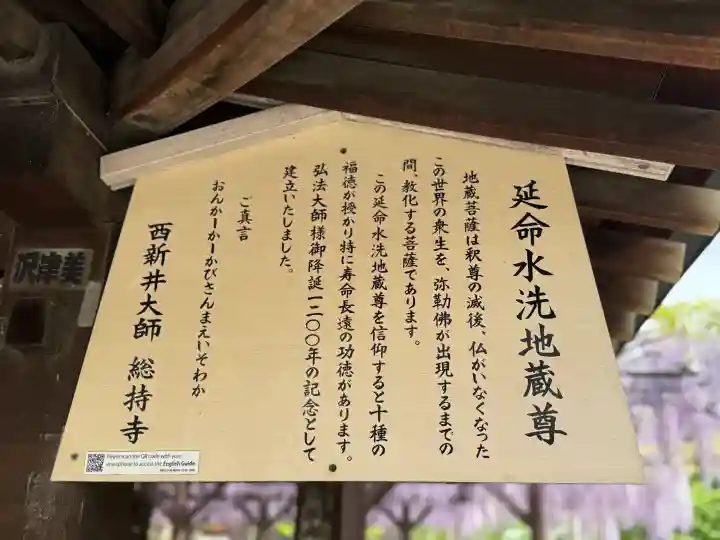 延命水洗地蔵尊
地蔵菩薩は釈尊の滅後、仏がいなくなった
この世界の衆生を、弥勒佛が出現するまでの
間、教化する菩薩であります。
この延命水洗地蔵尊を信仰すると十種の
福徳が授かり特に寿命長遠の功徳があります。
弘法大師様御降誕一二〇〇年の記念として
建立いたしました。
ご真言
おんかーかーかびさんまえいそわか
西新井大師 総持寺
Please scan the QR code with your
smartphone to access the English Guide.
美津沢